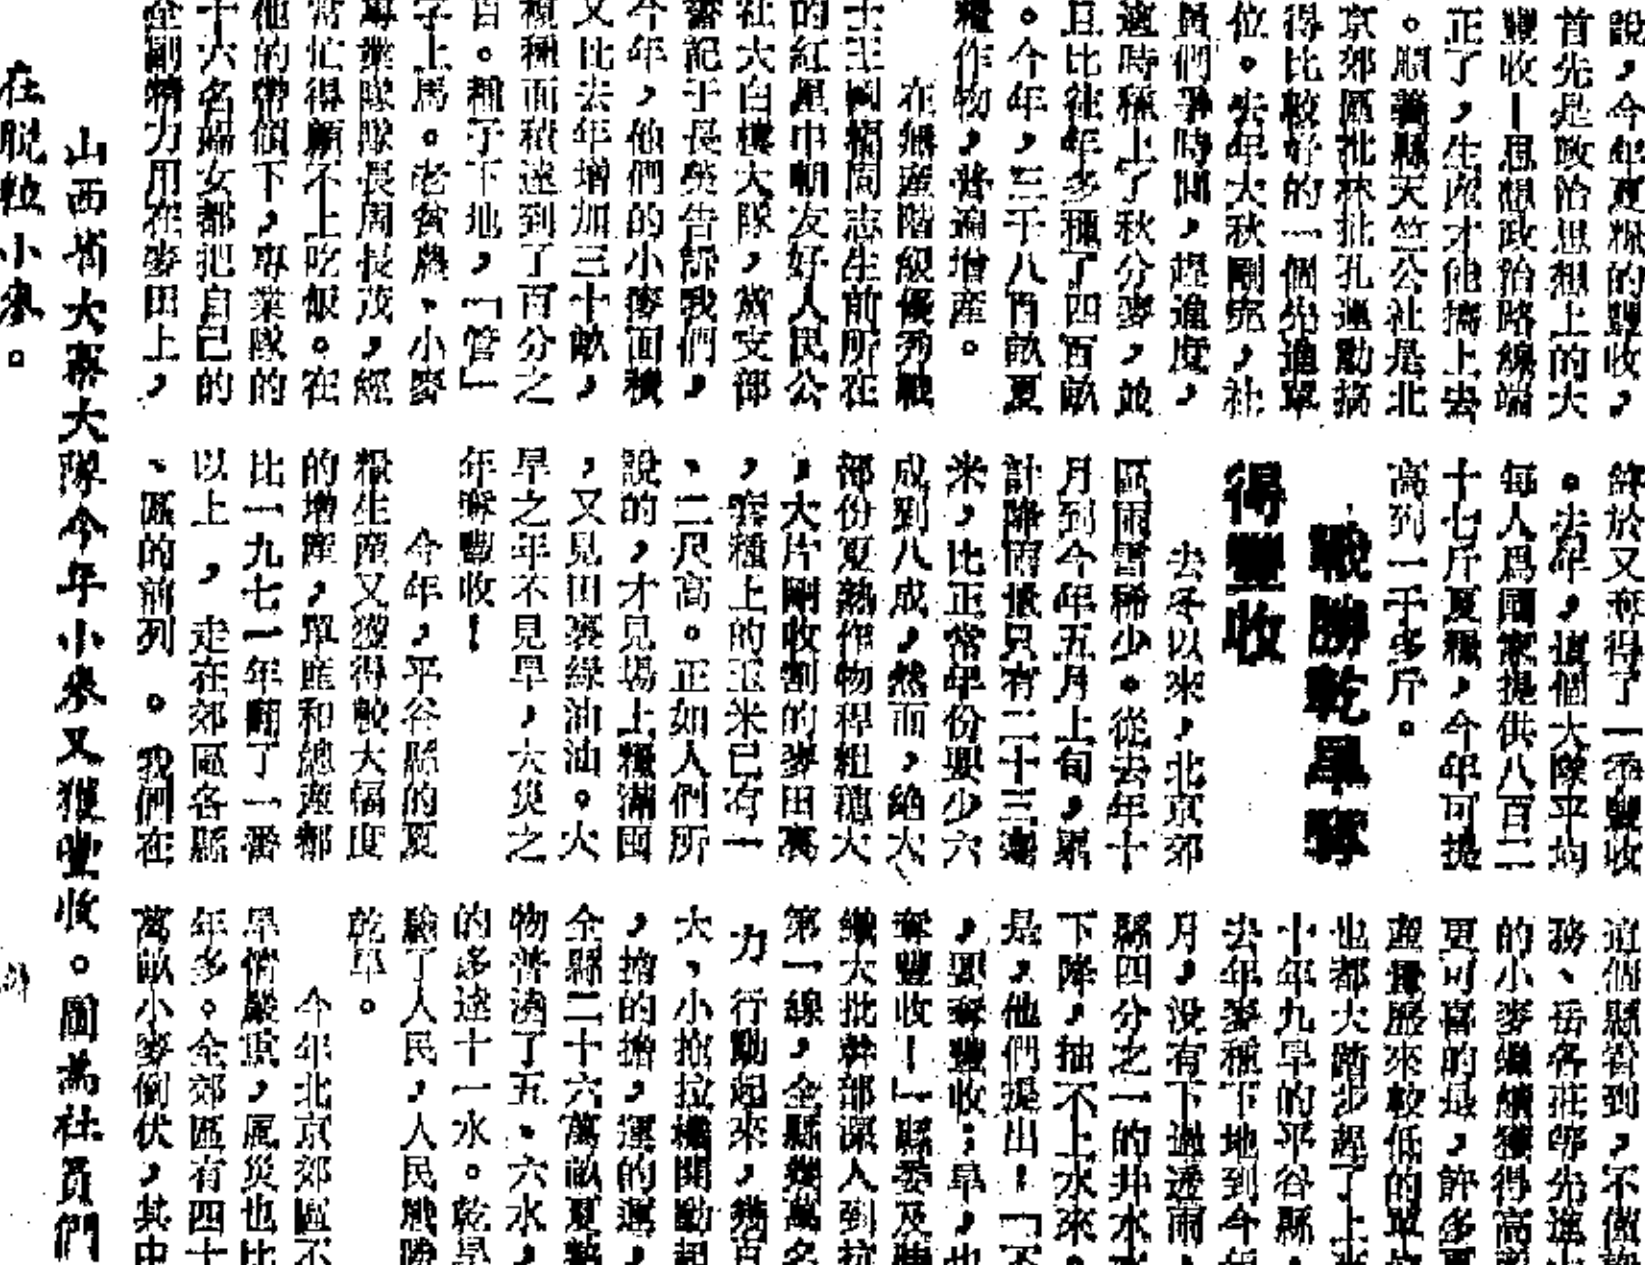 說,今年夏糧的豐收,
首先是政治思想上的大
豐收—思想政治路線端
正了,生產才能搞上去
。順義縣天竺公社是北
京郊區批林批孔運動搞
得比較好的一個先進單
位。去年大秋剛完,社
員們爭時間,趕進度,
適時種上了秋分麥,並
且比往年多種了四百畝
。今年,三千八百畝夏
糧作物,普遍增產。
在無產階級優秀戰
士王國福同志生前所在
的紅星中朝友好人民公
社大白樓大隊,黨支部
書記于長榮告訴我們,
今年,他們的小麥面積
又比去年增加三十畝,
複種面積達到了百分之
百。種子下地,「管」
字上馬。老貧農、小麥
專業隊隊長周長茂,經
常忙得顧不上吃飯。在
他的帶領下,專業隊的
十六名婦女都把自己的
全副精力用在麥田上,
於又奪得了一季豐收
。去年,這個大隊平均
每人爲國家提供八百二
十七斤夏糧,今年可提
高到一千多斤。
戰勝乾旱奪
得豐收
去冬以來,北京郊
區雨雪稀少。從去年十
月到今年五月上旬,累
計降雨量只有二十三毫
米,比正常年份要少六
成到八成,然而,絕大
部份夏熟作物稈粗穗大
,大片剛收割的麥田裏
,套種上的玉米已有一
、二尺高。正如人們所
說的,才見場上糧滿囤
,又見田裏綠油油。大
旱之年不見旱,大災之
年奪豐收!
今年,平谷縣的夏
糧生產又獲得較大幅度
的增產,單產和總產都
比一九七一年翻了一番
以上,走在郊區各縣
、區的前列。我們在
這個縣看到,不僅
務、岳各莊等先進
的小麥繼續獲得高
更可喜的是,許多
產量歷來較低的單
也都大踏步趕了上
十年九旱的平谷縣,
去年麥種下地到今年
月,沒有下過透雨,
縣四分之一的井水
下降,抽不上水來。
是,他們提出:「不
,要奪豐收;旱,也
奪豐收!」縣委及
織大批幹部深入到抗
第一線,全縣幾萬名
力行動起來,幾百
大、小拖拉機開動起
,擔的擔,運的運,
全縣二十六萬畝夏
物普澆了五、六水,
的多達十一水。乾旱
驗了人民,人民戰勝
乾旱。
今年北京郊區不
旱情嚴重,風災也比
年多。全郊區有四十
萬畝小麥倒伏,其中
山西省大寨大隊今年小麥又獲豐收。圖爲社員們
在脫粒小麥。